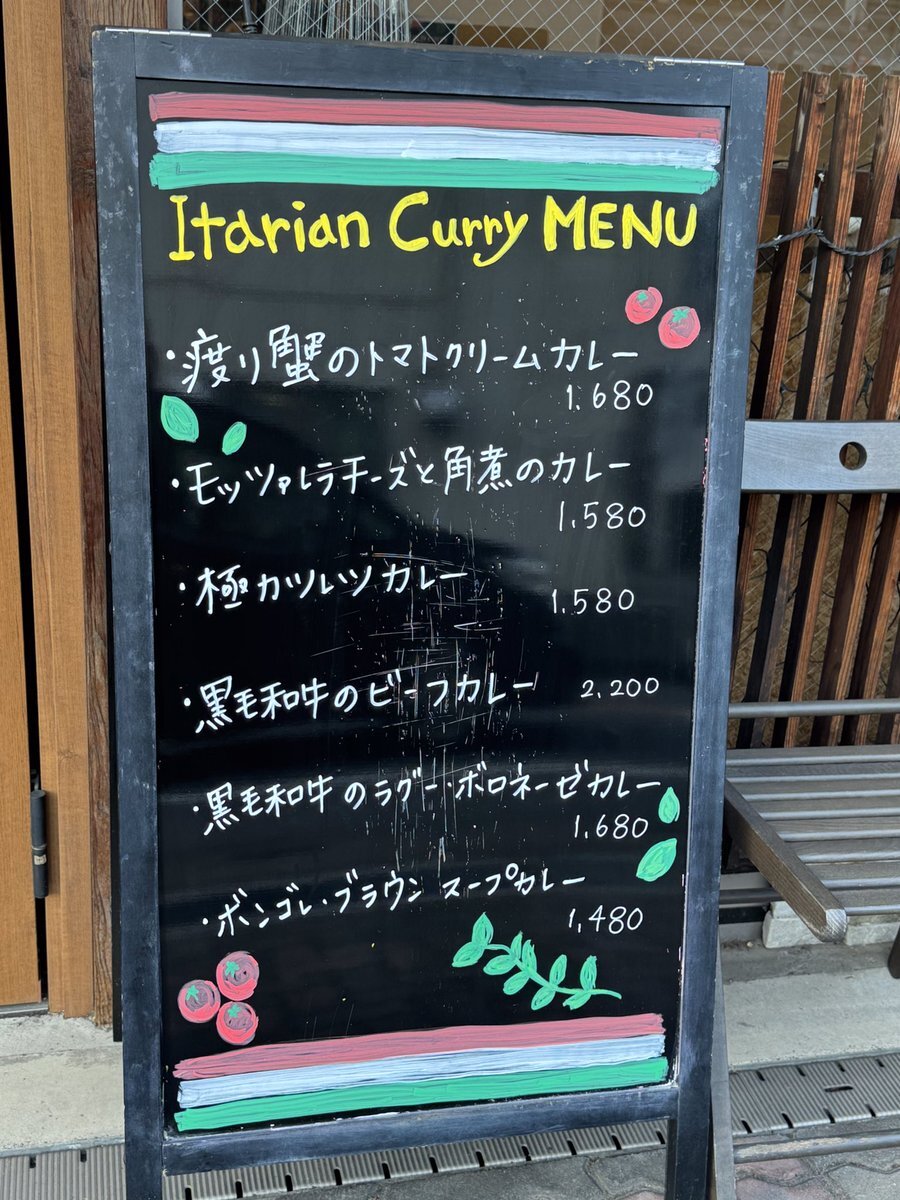 Itarian Curry MENU
・渡り蟹のトマトクリームカレー
1.680
・モッツァレラチーズと角煮のカレー
1.580
・極カツレツカレー 1.580
・黒毛和牛のビーフカレー 2.200
・黒毛和牛のラグー・ボロネーゼカレー
1.680
・ボンゴレ・ブラウン スープカレー
1,480